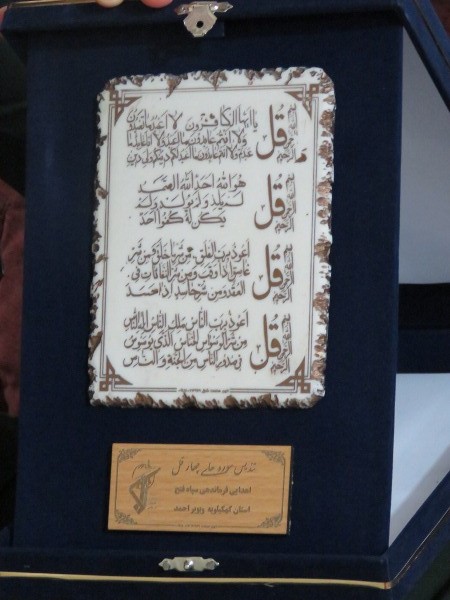 بسم الله الرحمن الرحیم
قل
یا ایها الکافرون لا اعبد ما تعبدون
ولا انتم عابدون ما اعبد ولا انا عابد ما
عبدتم ولا انتم عابدون ما اعبد لکم دینکم ولی دین
بسم الله الرحمن الرحیم
قل
هو الله احد الله الصمد
لم یلد ولم یولد ولم
یکن له کفوا احد
بسم الله الرحمن الرحیم
قل
اعوذ برب الفلق من شر ما خلق ومن شر
غاسق اذا وقب ومن شر النفاثات فی
العقد ومن شر حاسد اذا حسد
بسم الله الرحمن الرحیم
قل
اعوذ برب الناس ملک الناس اله الناس
من شر الوسواس الخناس الذی یوسوس
فی صدور الناس من الجنة و الناس
تندیس سوره های چهار قل
اهدایی فرماندهی سپاه فتح
استان کهکیلویه وبویر احمد